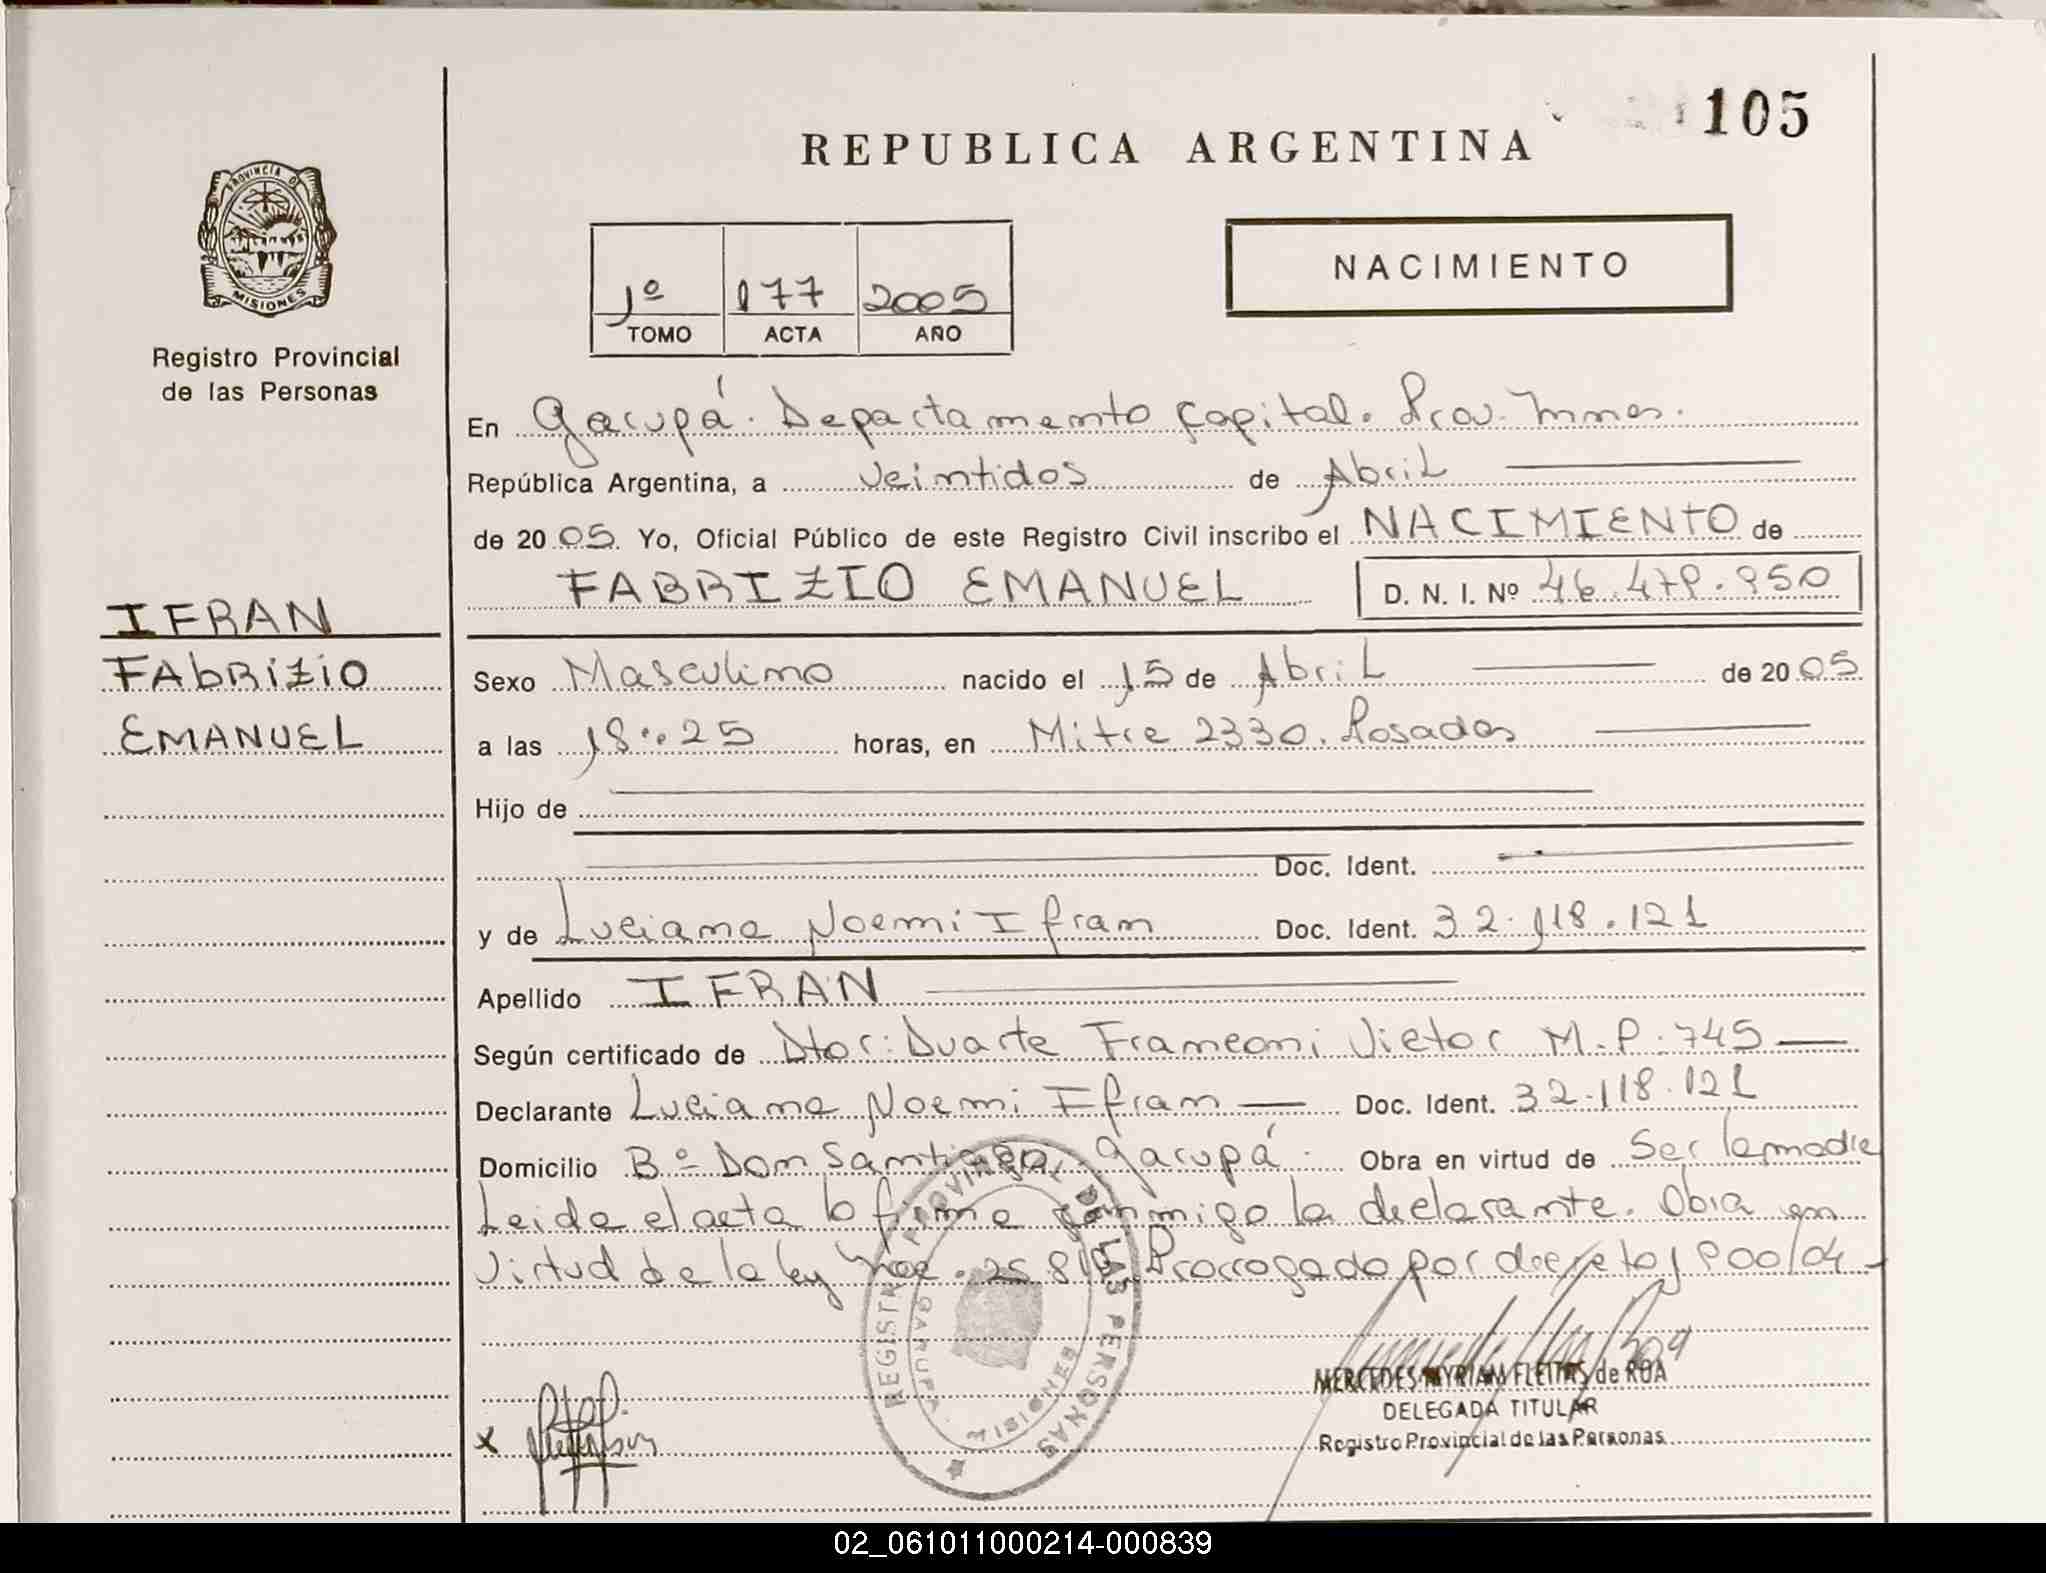 105
REPUBLICA ARGENTINA
PROVINCIA DE
MISIONES
Registro Provincial
de las Personas
NACIMIENTO
1º 177 2005
TOMO ACTA AÑO
En Garupá. Departamento Capital. Prov. Mnes.
República Argentina, a veintidos de Abril
de 2005 Yo, Oficial Público de este Registro Civil inscribo el NACIMIENTO de
FABRIZIO EMANUEL D. N. I. Nº
IFRAN
FAbRIZIO
EMANUEL
Sexo Masculino nacido el 15 de Abril de 2005
a las 18:25 horas, en Mitre 2330. Posadas
Hijo de
Doc. Ident.
y de Luciana Noemi Ifran Doc. Ident. 32.118.121
Apellido IFRAN
Según certificado de Dtor: Duarte Victor M.P. 745
Declarante Luciana Noemi Ifran Doc. Ident. 32.118.121
Domicilio Bº Don Santiago. Garupá. Obra en virtud de Ser la madre
Leida el acta la firma conmigo la declarante. Obra en
virtud de la ley Prorrogado por decreto
REGISTRO PROVINCIAL DE LAS PERSONAS
GARUPA
MISIONES
MERCEDES MYRIAM FLEITAS de ROA
DELEGADA TITULAR
Registro Provincial de las Personas
x
02_061011000214-000839